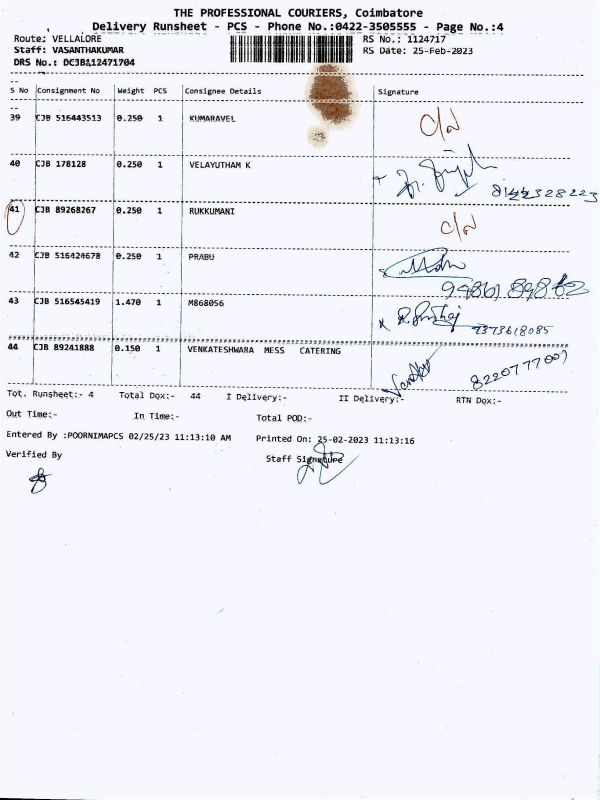 THE PROFESSIONAL COURIERS, Coimbatore
Delivery Runsheet - PCS - Phone No.:0422-3505555 - Page No.:4
Route: VELLALORE RS No.: 1124717
Staff: VASANTHAKUMAR RS Date: 25-Feb-2023
DRS No.: DCJB112471704
S No Consignment No Weight PCS Consignee Details Signature
39 CJB 516443513 0.250 1 KUMARAVEL
40 CJB 178128 0.250 1 VELAYUTHAM K
41 CJB 89268267 0.250 1 RUKKUMANI
42 CJB 516424678 0.250 1 PRABU
43 CJB 516545419 1.470 1 M868056 7373618085
44 CJB 89241888 0.150 1 VENKATESHWARA MESS CATERING 8220777007
Tot. Runsheet:- 4 Total Dox:- 44 I Delivery:- II Delivery:- RTN Dox:-
Out Time:- In Time:- Total POD:-
Entered By :POORNIMAPCS 02/25/23 11:13:10 AM Printed On: 25-02-2023 11:13:16
Verified By Staff Signature